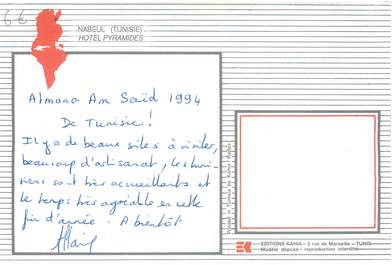 6€
NABEUL (TUNISIE)
HOTEL PYRAMIDES
Almana Am Saïd 1994
De Tunisie !
Il y a de beaux sites à visiter,
beaucoup d'artisanat, les tuni-
siens sont très accueillants et
le temps très agréable en cette
fin d'année. A bientôt
EDITIONS KAHIA - 2 rue de Marseille - TUNIS
Modèle déposé - reproduction interdite